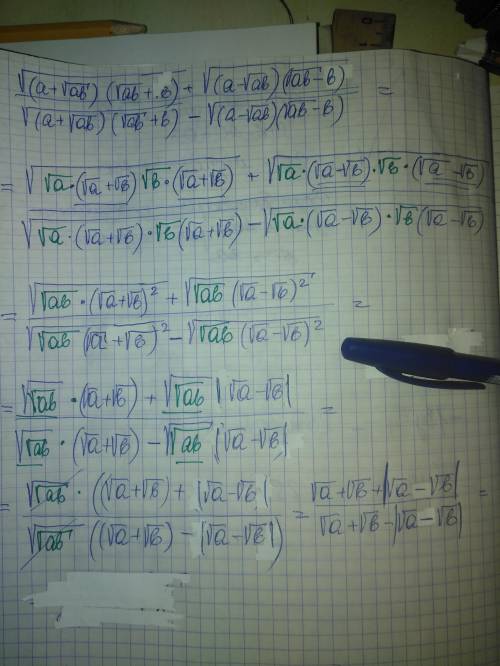 (√((a+√ab)(√ab+b)) + √((a-√ab)(√ab-b))) / (√((a+√ab)(√ab+b)) - √((a-√ab)(√ab-b))) =
= (√(√a·(√a+√b)√b·(√a+√b)) + √(√a·(√a-√b)·√b·(√a-√b))) / (√(√a·(√a+√b)·√b(√a+√b)) - √(√a·(√a-√b)·√b(√a-√b)))
= (√(√ab·(√a+√b)²) + √(√ab(√a-√b)²)) / (√(√ab(√a+√b)²) - √(√ab(√a-√b)²)) =
= (√√ab·(√a+√b) + √√ab|√a-√b|) / (√√ab·(√a+√b) - √√ab|√a-√b|) =
= (√√ab·((√a+√b) + |√a-√b|) / (√√ab((√a+√b) - |√a-√b|) = (√a+√b+|√a-√b|) / (√a+√b-|√a-√b|) =